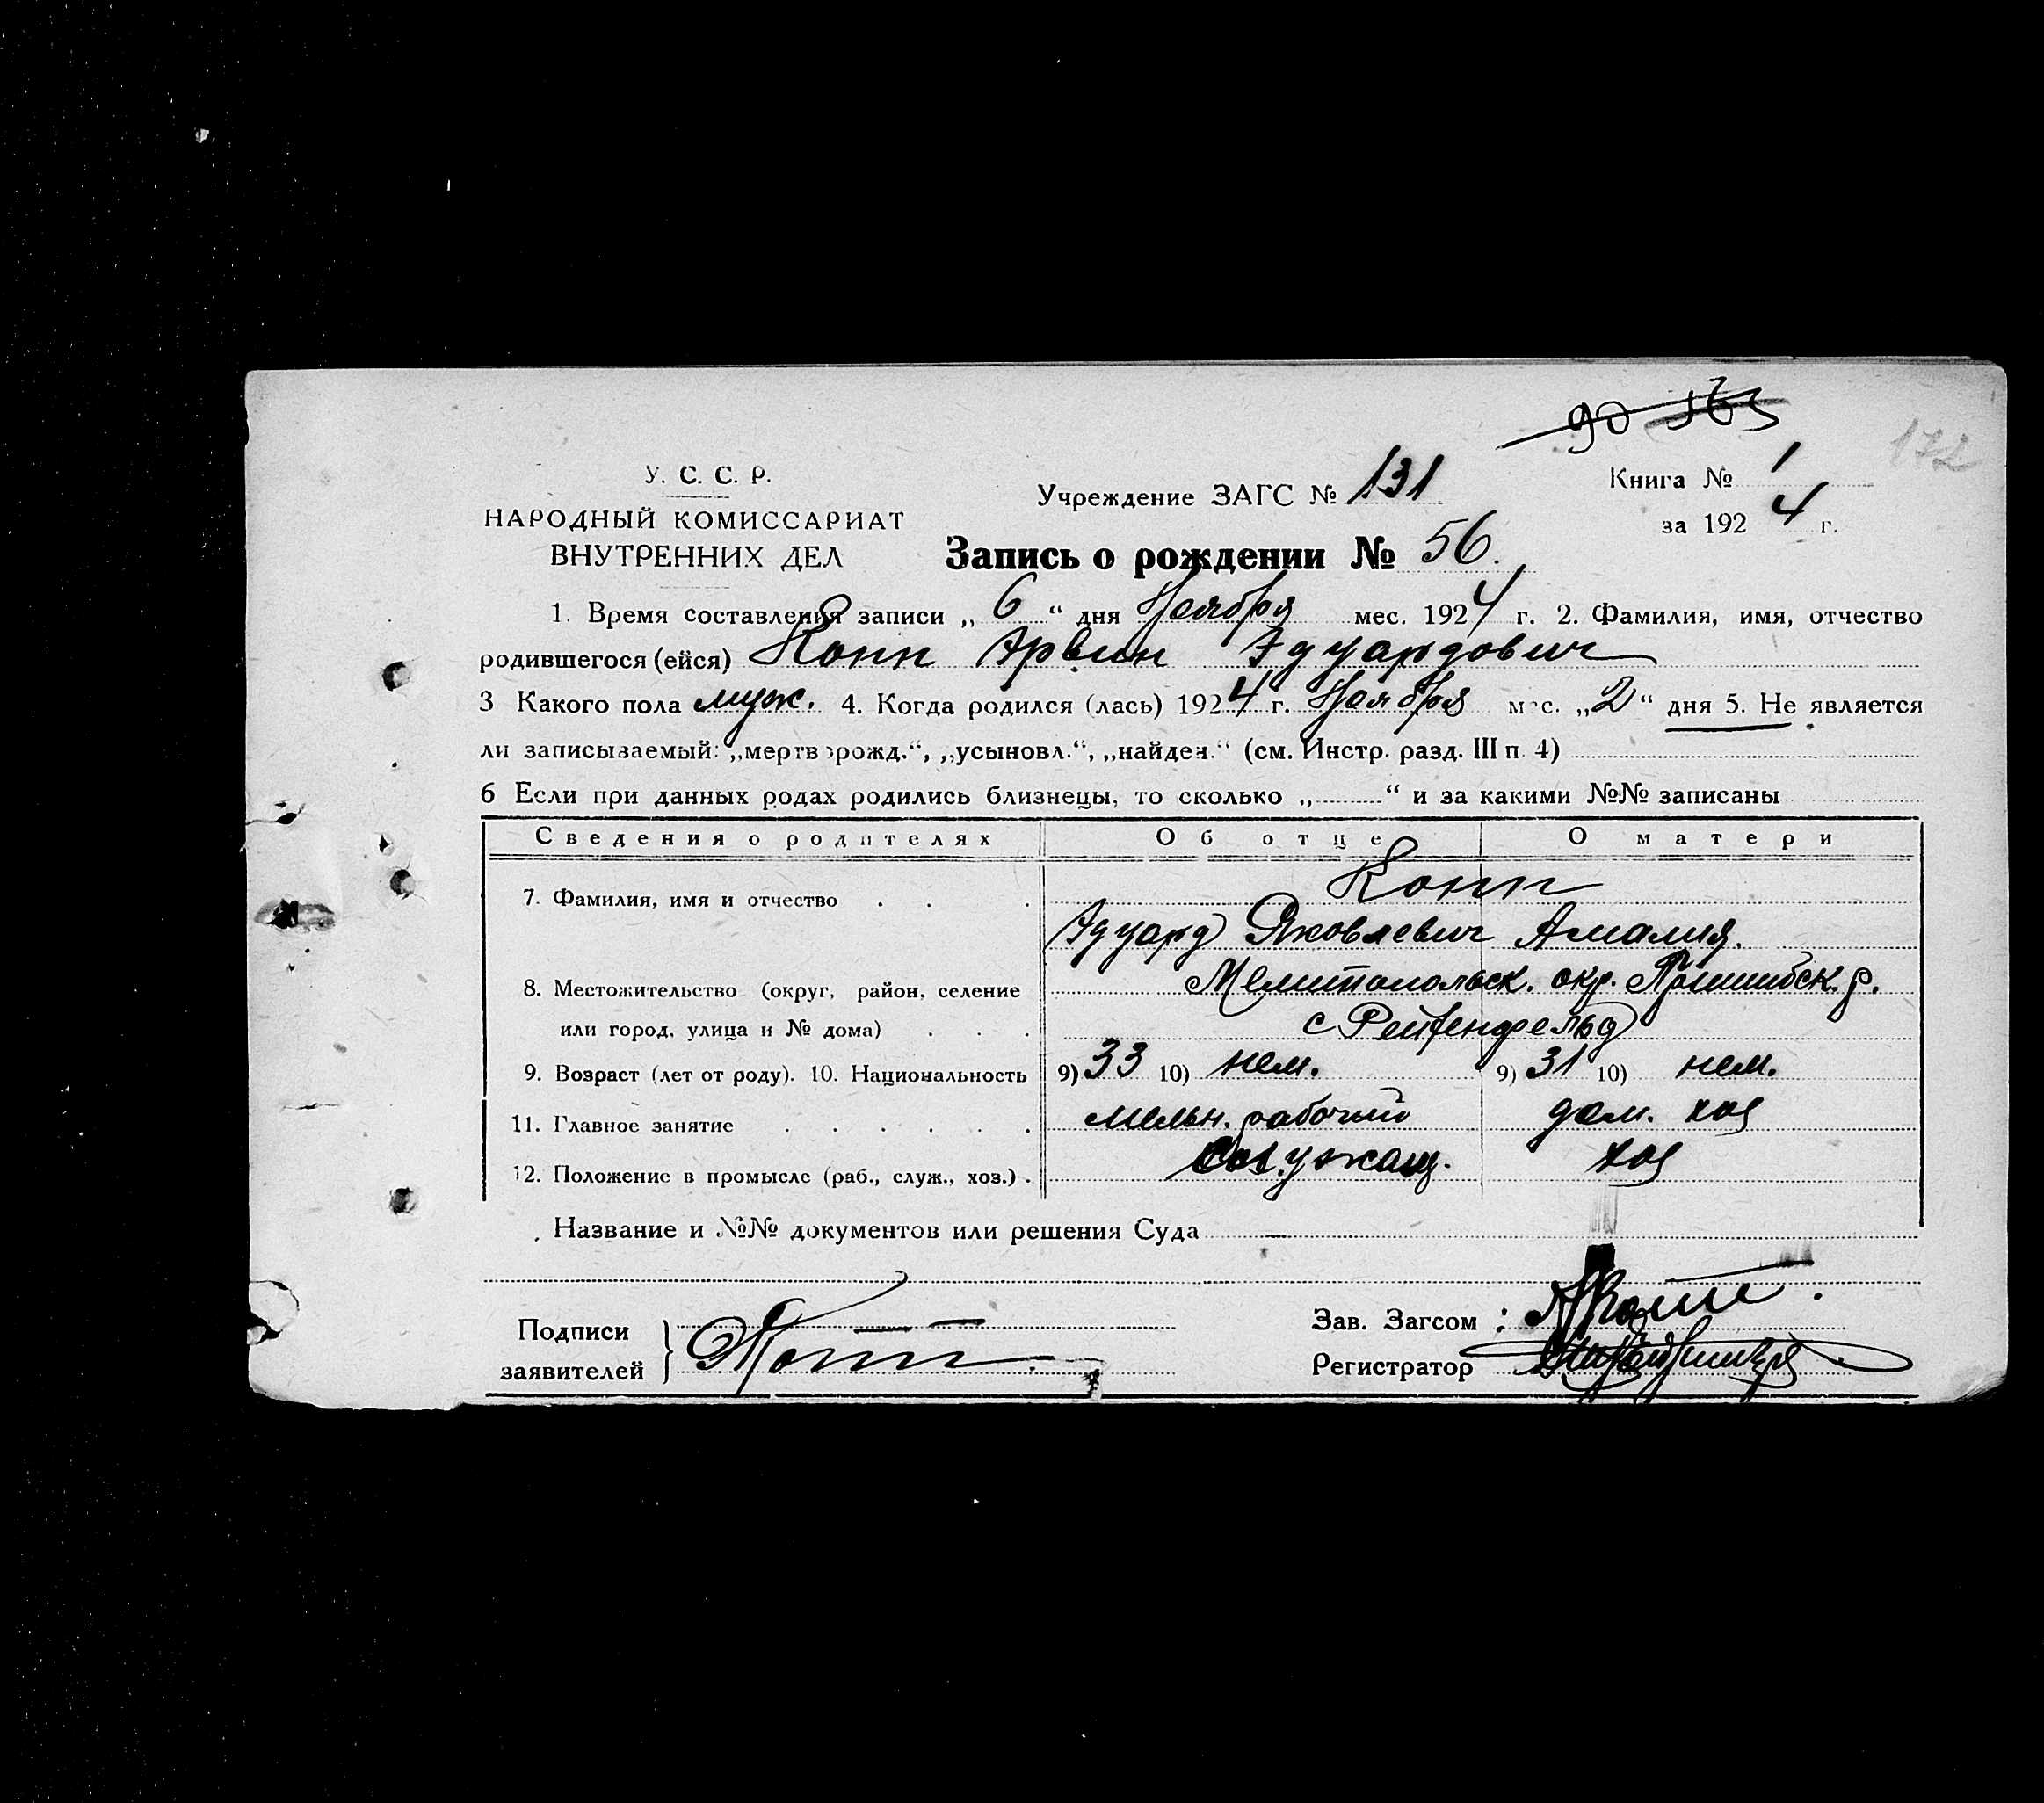 90 363
172
У. С. С. Р.
НАРОДНЫЙ КОМИССАРИАТ
ВНУТРЕННИХ ДЕЛ
Учреждение ЗАГС № 131
Книга № 1
за 1924 г.
Запись о рождении № 56.
1. Время составления записи „ 6 “ дня Ноября мес. 1924 г. 2. Фамилия, имя, отчество
родившегося (ейся) Копп Арвин Эдуардович
3 Какого пола муж. 4. Когда родился (лась) 1924 г. Ноября мес. „2“ дня 5. Не является
ли записываемый: „мертворожд.“, „усыновл.“, „найден.“ (см. Инстр. разд. III п. 4)
6 Если при данных родах родились близнецы, то сколько „ “ и за какими №№ записаны
Сведения о родителях Об отце О матери
7. Фамилия, имя и отчество Копп
Эдуард Яковлевич Амалия.
8. Местожительство (округ, район, селение Мелитопольск. окр. Пришибск. р.
или город, улица и № дома) с Рейхенфельд
9. Возраст (лет от роду). 10. Национальность 9) 33 10) нем. 9) 31 10) нем.
11. Главное занятие мельн. рабочий дом. хоз
12. Положение в промысле (раб., служ., хоз.) служащ. хоз
Название и №№ документов или решения Суда
Подписи
заявителей
Зав. Загсом :
Регистратор